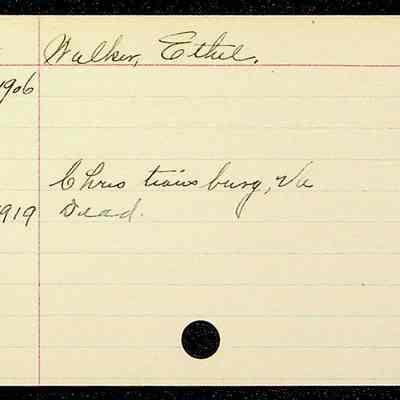 Walker, Ethel.
1906
Christiansburg, Va
1919 Dead.